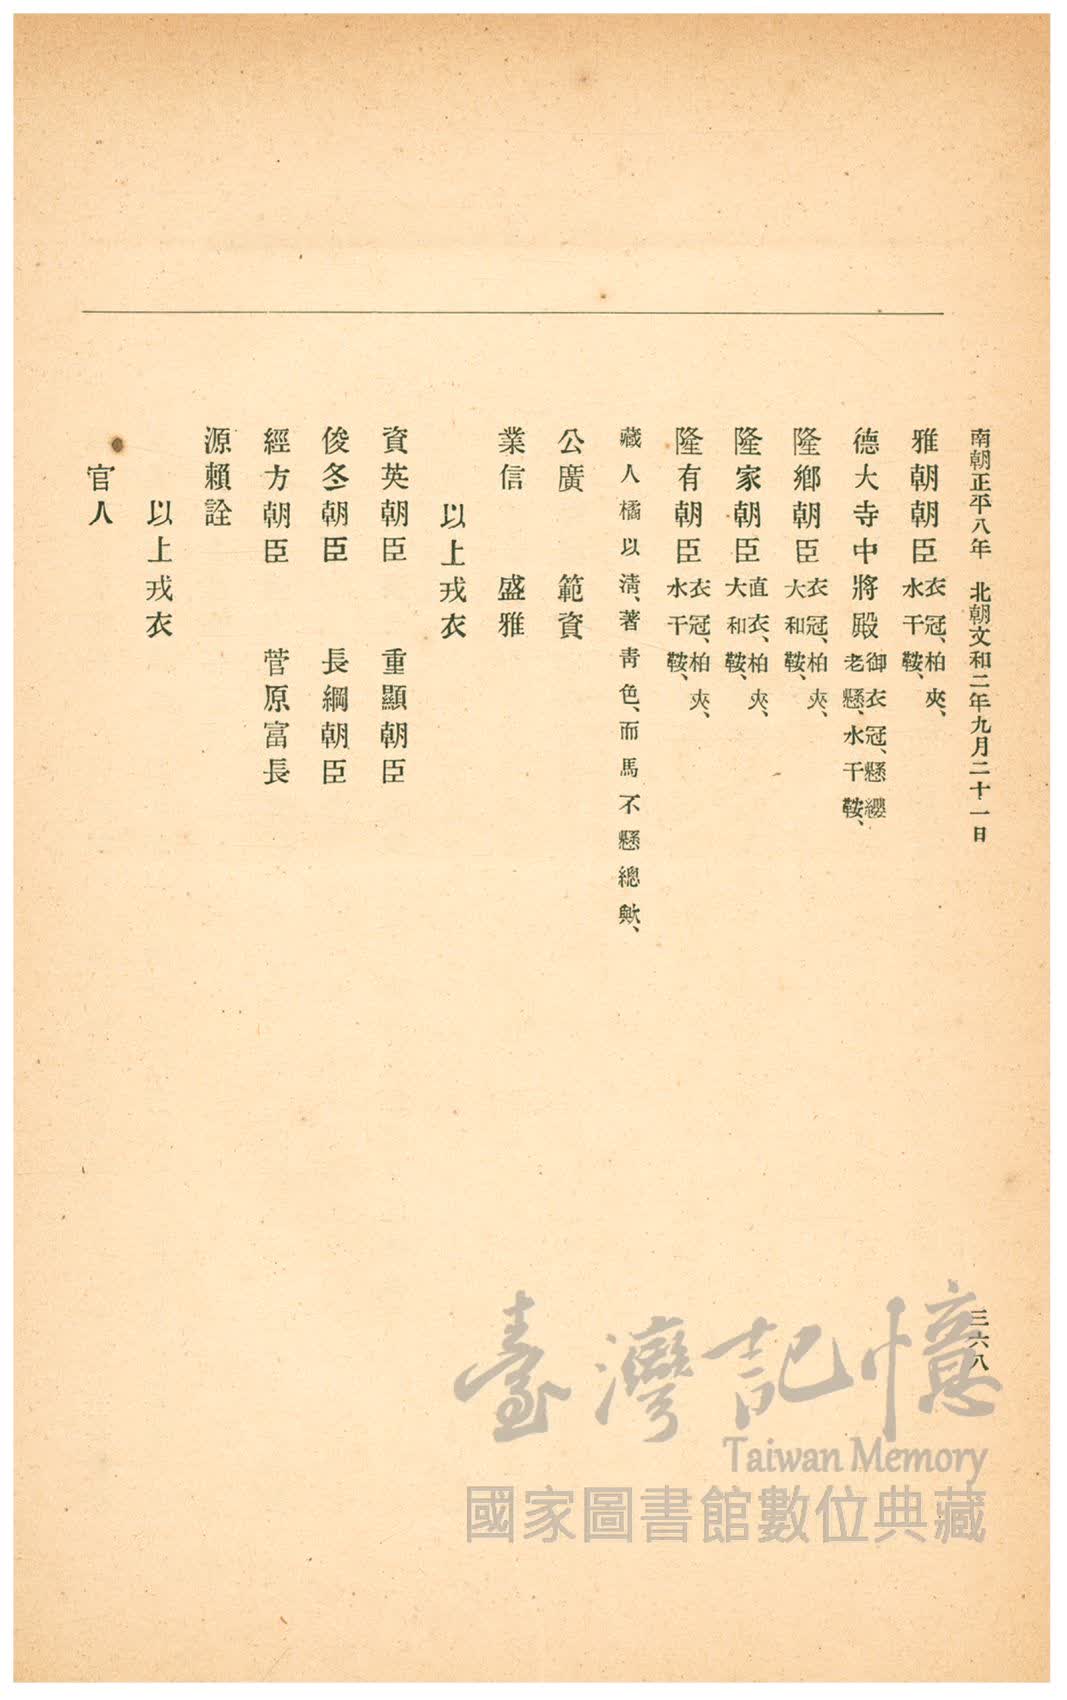 南朝正平八年　北朝文和二年九月二十一日
三六八
雅朝朝臣衣冠、柏夾、
水干鞍、
德大寺中將殿御衣冠、懸纓
老懸、水干鞍、
隆鄉朝臣衣冠、柏夾、
大和鞍、
隆家朝臣直衣、柏夾、
大和鞍、
隆有朝臣衣冠、柏夾、
水干鞍、
藏人橘以淸、著靑色、而馬不懸總歟、
公廣　範資
業信　盛雅
以上戎衣
資英朝臣　重顯朝臣
俊冬朝臣　長綱朝臣
經方朝臣　菅原富長
源賴詮
以上戎衣
官人
臺灣記憶
Taiwan Memory
國家圖書館數位典藏